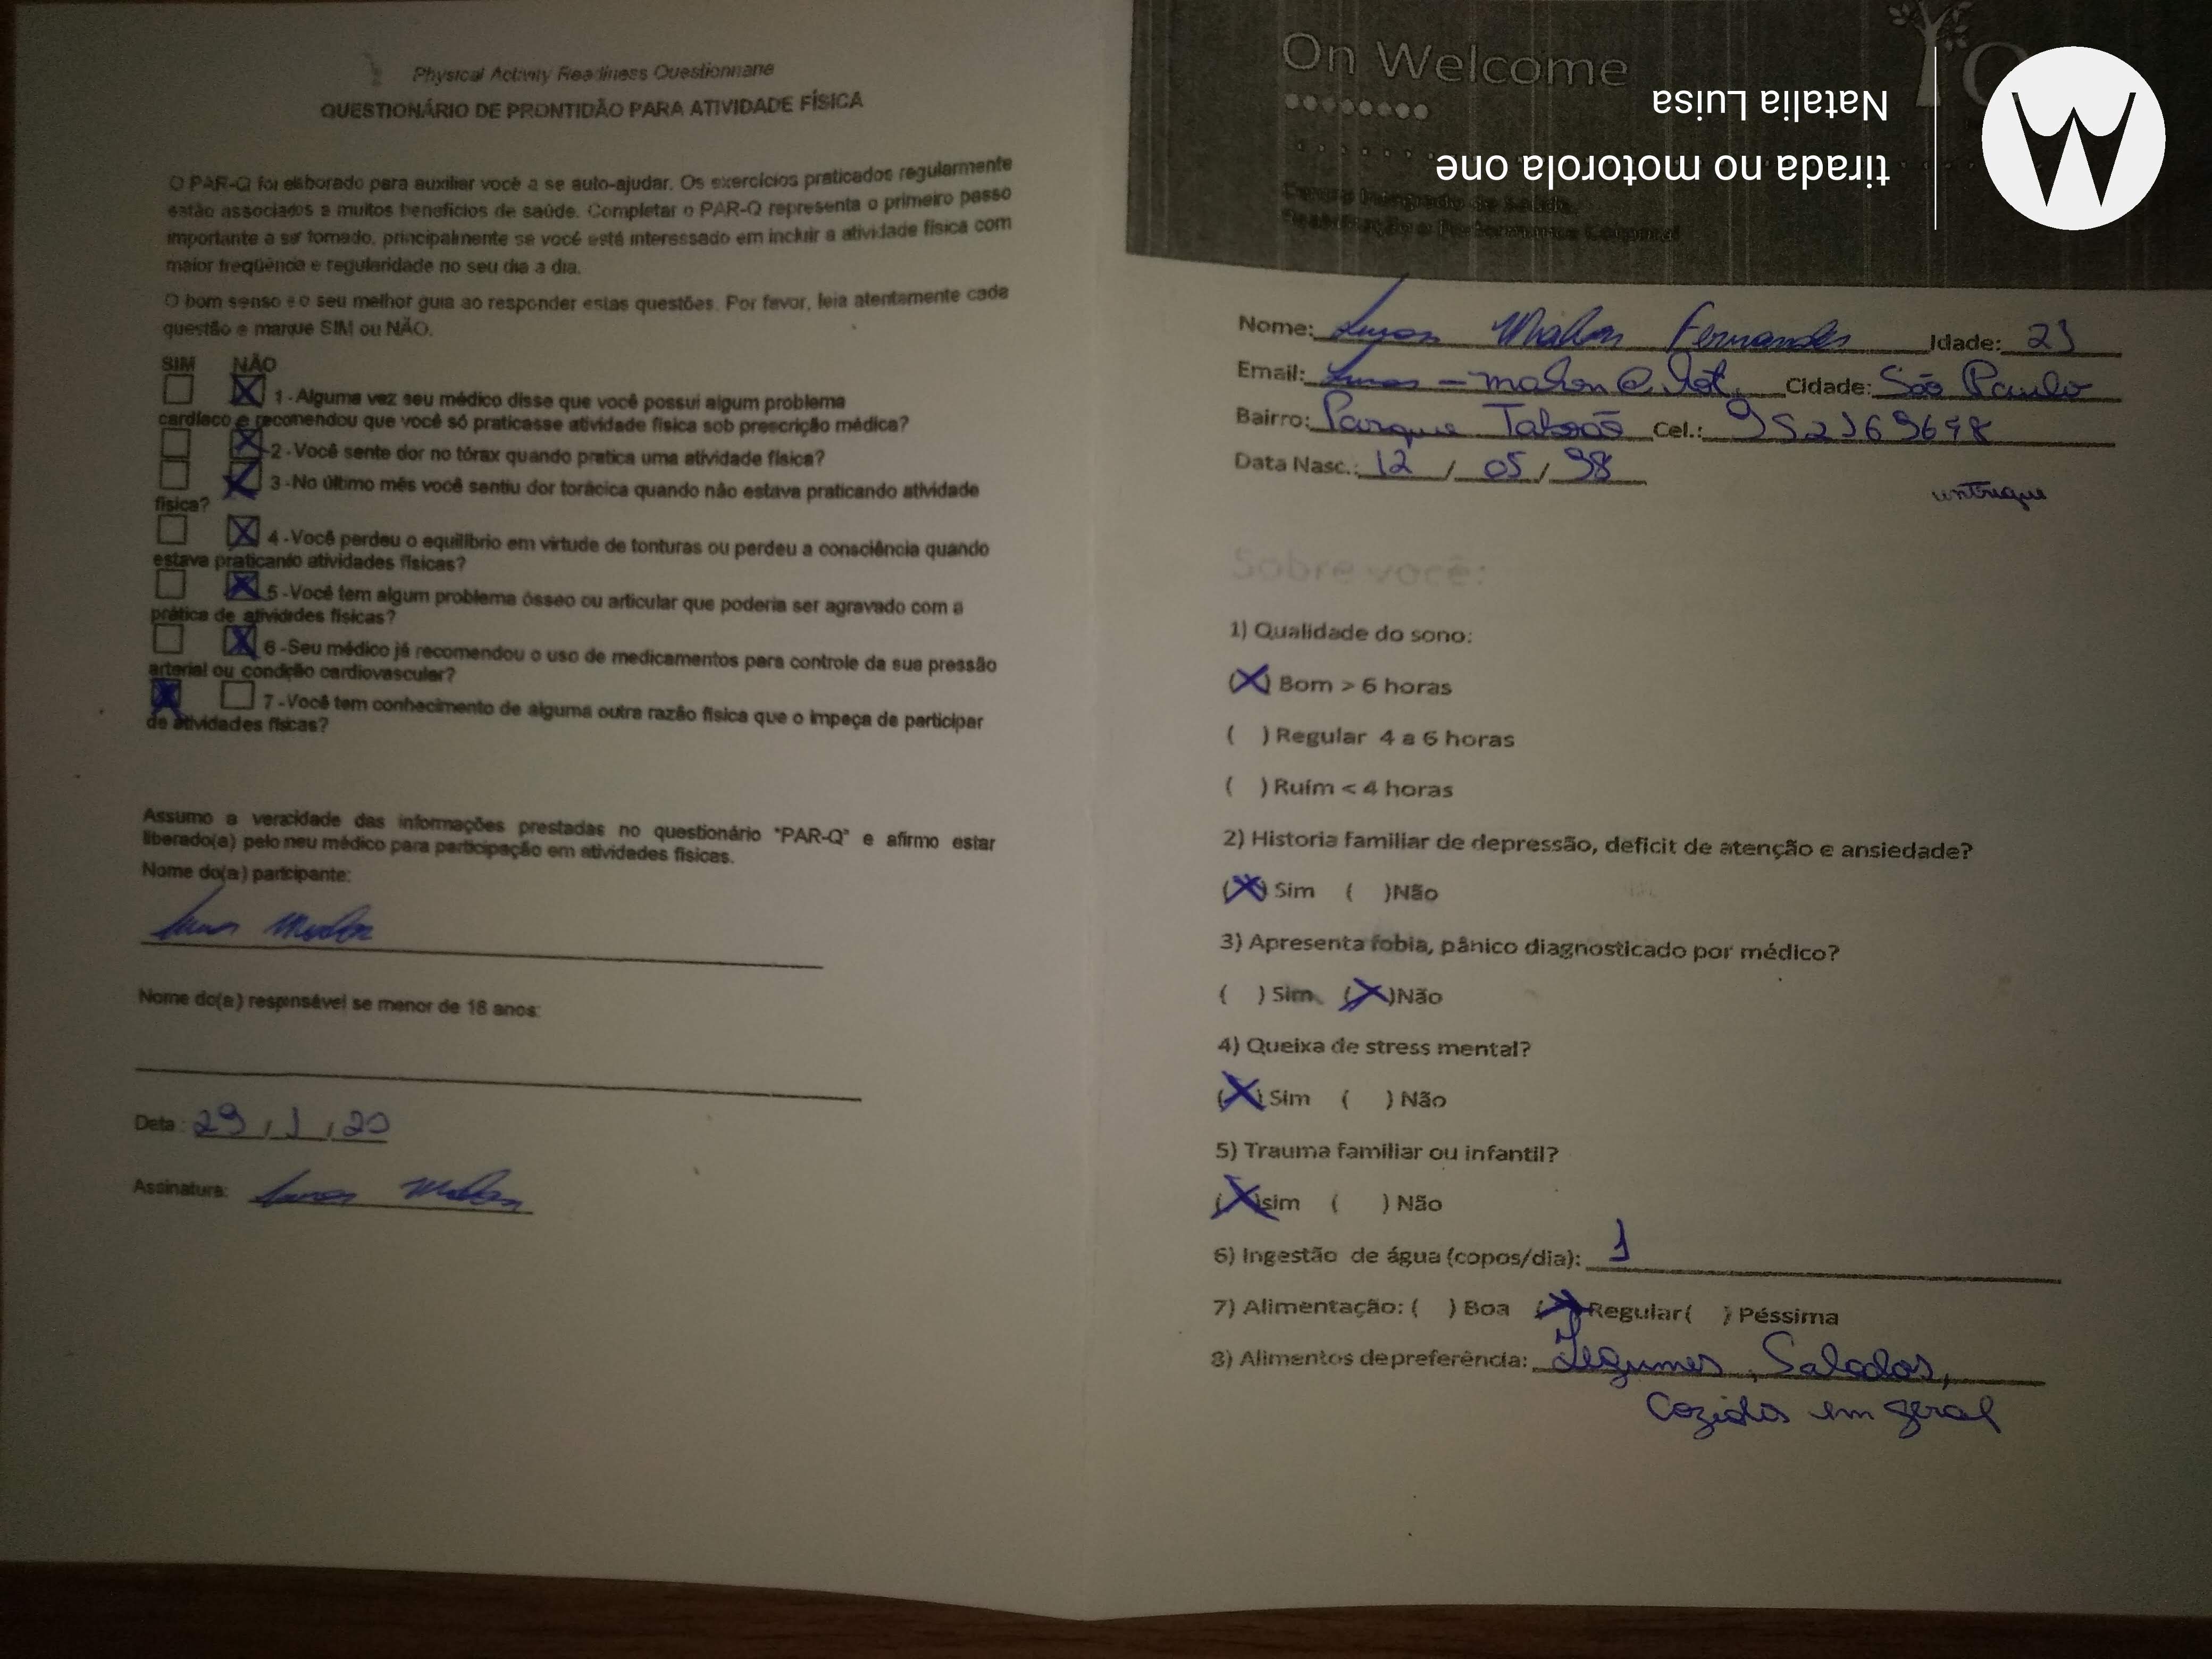 Physical Activity Readiness Questionnaire
QUESTIONÁRIO DE PRONTIDÃO PARA ATIVIDADE FÍSICA
O PAR-Q foi elaborado para auxiliar você a se auto-ajudar. Os exercícios praticados regularmente
estão associados a muitos benefícios de saúde. Completar o PAR-Q representa o primeiro passo
importante a ser tomado, principalmente se você está interessado em incluir a atividade física com
maior freqüência e regularidade no seu dia a dia.
O bom senso é o seu melhor guia ao responder estas questões. Por favor, leia atentamente cada
questão e marque SIM ou NÃO.
SIM NÃO
X 1 - Alguma vez seu médico disse que você possui algum problema
cardíaco e recomendou que você só praticasse atividade física sob prescrição médica?
X 2 - Você sente dor no tórax quando pratica uma atividade física?
X 3 - No último mês você sentiu dor torácica quando não estava praticando atividade
física?
X 4 - Você perdeu o equilíbrio em virtude de tonturas ou perdeu a consciência quando
estava praticando atividades físicas?
X 5 - Você tem algum problema ósseo ou articular que poderia ser agravado com a
prática de atividades físicas?
X 6 - Seu médico já recomendou o uso de medicamentos para controle da sua pressão
arterial ou condição cardiovascular?
X 7 - Você tem conhecimento de alguma outra razão física que o impeça de participar
de atividades físicas?
Assumo a veracidade das informações prestadas no questionário "PAR-Q" e afirmo estar
liberado(a) pelo meu médico para participação em atividades físicas.
Nome do(a) participante:
Lucas Mahon
Nome do(a) responsável se menor de 18 anos:
Data: 29 / 1 / 20
Assinatura: Lucas Mahon
On Welcome
Natalia Luisa
tirada no motorola one
Nome: Lucas Mahon Fernandes Idade: 21
Email: Lucas-mahon@hot. Cidade: São Paulo
Bairro: Parque Taboão Cel.:
Data Nasc.: 12 / 05 / 98
entregue
Sobre você:
1) Qualidade do sono:
(X) Bom > 6 horas
( ) Regular 4 a 6 horas
( ) Ruím < 4 horas
2) Historia familiar de depressão, deficit de atenção e ansiedade?
(X) Sim ( )Não
3) Apresenta fobia, pânico diagnosticado por médico?
( ) Sim (X)Não
4) Queixa de stress mental?
(X) Sim ( ) Não
5) Trauma familiar ou infantil?
(X)sim ( ) Não
6) Ingestão de água (copos/dia): 1
7) Alimentação: ( ) Boa (X) Regular ( ) Péssima
8) Alimentos de preferência: Legumes, Salados,
Cozidos em geral